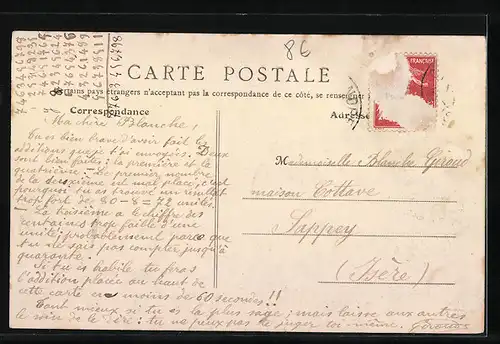 86
CARTE POSTALE
pays étrangers n'acceptant pas la correspondance de ce côté, se renseigner
Correspondance
Adresse
FRANÇAISE
Ma chère Blanche,
Tu es bien brave d'avoir fait les
additions que je t'ai envoyées. Deux
sont bien faites: la première et la
quatrième. - Le premier nombre
de la deuxième est mal placé; c'est
pourquoi tu as trouvé un résultat
trop fort de 80 - 8 = 72 unités.
La troisième a le chiffre des
centaines trop faible d'une
unité; probablement parce que
tu ne sais pas compter jusqu'à
quarante.
Si tu es habile tu feras
l'addition placée au haut de
cette carte en moins de 60 secondes!!
Tant mieux si tu es la plus sage; mais laisse aux autres
le soin de le dire: tu ne peux pas te juger toi-même. Giroud
Mademoiselle Blanche Giroud
maison Cottave
Sappey
(Isère)